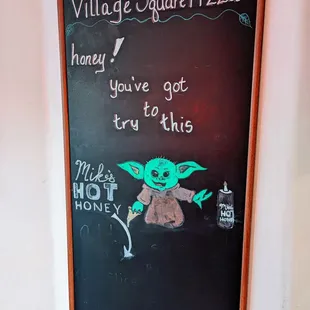 Village Square Pizza
honey!
you've got
to
try this
Mike's
HOT
HONEY
HOT